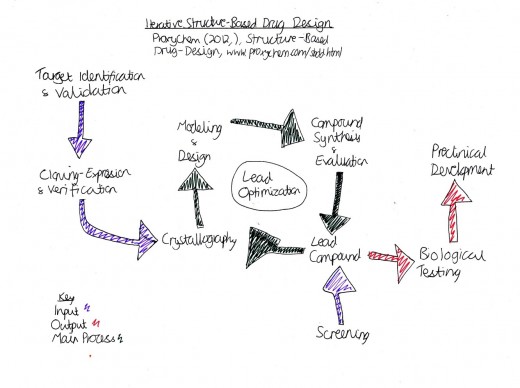 Iterative Structure-Based Drug Design
ProxyChem (2012,), Structure-Based
Drug-Design, www.proxychem.com/sbdd.html
Target Identification
& Validation
Cloning-Expression
& Verification
Crystallography
Modeling
&
Design
Compound
Synthesis
&
Evaluation
Lead
Optimization
Lead
Compound
Screening
Biological
Testing
Preclinical
Development
Key
Input
Output
Main Process